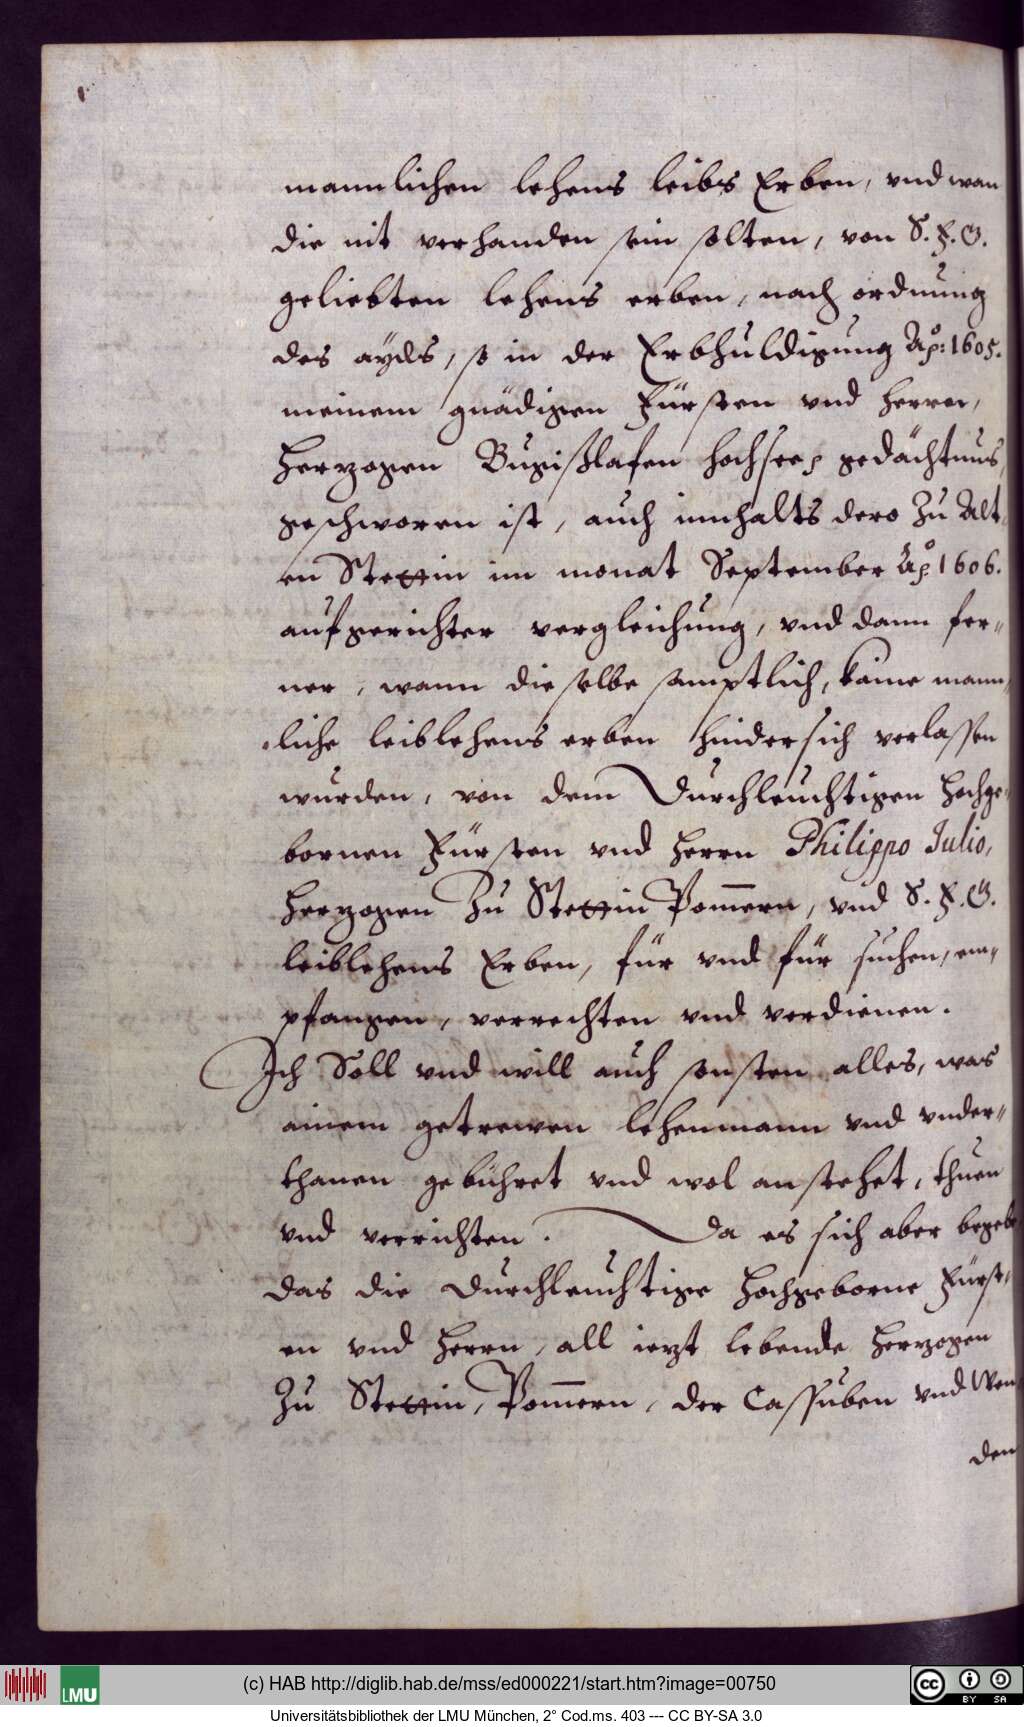 mannlichen lehens leibs Erben, vnd wan
die nit verhanden sein solten, von S. F. G.
geliebten lehens erben, nach ordnung
des ayds, so in der Erbhuldigung Ao: 1605.
meinem gnädigen Fürsten vnd herrn,
Herzogen Bugißlafen hochsee: gedächtnus
geschworen ist, auch innhalts dero Zu Alt
en Stettin im monat September Ao. 1606.
aufgerichter vergleichung, vnd dann fer-
ner, wann dieselbe samptlich, kaine mann-
liche leiblehens erben hindersich verlassen
wurden, von dem Durchleuchtigen Hochge-
bornen Fürsten vnd Herrn Philippo Julio,
Herzogen Zu Stettin Pom̄ern, vnd S. F. G.
leiblehens Erben, für vnd für suchen, em-
pfangen, verrechten vnd verdienen.
Ich Soll vnd will auch sonsten alles, was
ainem getrewen lehenmann vnd vnder-
thanen gebühret vnd wol anstehet, thuen
vnd verrichten. Da es sich aber begebe
das die Durchleuchtige Hochgeborne Fürst-
en vnd Herrn, all iezt lebende Herzogen
Zu Stettin, Pom̄ern, der Cassuben vnd Wen
den
(c) HAB http://diglib.hab.de/mss/ed000221/start.htm?image=00750
LMU
BY SA
Universitätsbibliothek der LMU München, 2° Cod.ms. 403 --- CC BY-SA 3.0